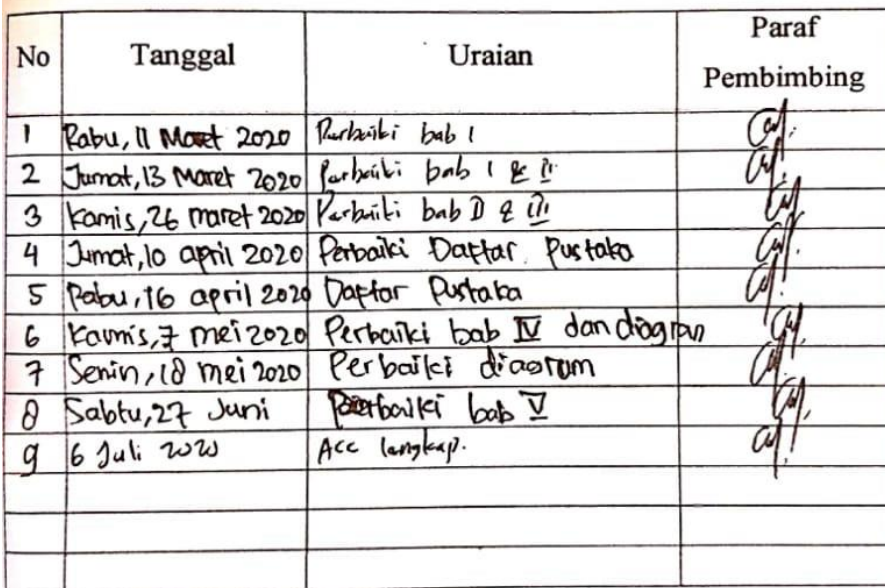 No Tanggal Uraian Paraf Pembimbing
1 Rabu, 11 Maret 2020 Perbaiki bab 1
2 Jumat, 13 Maret 2020 Perbaiki bab 1 & III
3 Kamis, 26 maret 2020 Perbaiki bab II & III
4 Jumat, 10 april 2020 Perbaiki Daftar Pustaka
5 Rabu, 16 april 2020 Daftar Pustaka
6 Kamis, 7 mei 2020 Perbaiki bab IV dan diagram
7 Senin, 18 mei 2020 Perbaiki diagram
8 Sabtu, 27 Juni Perbaiki bab V
9 6 Juli 2020 Acc lengkap.